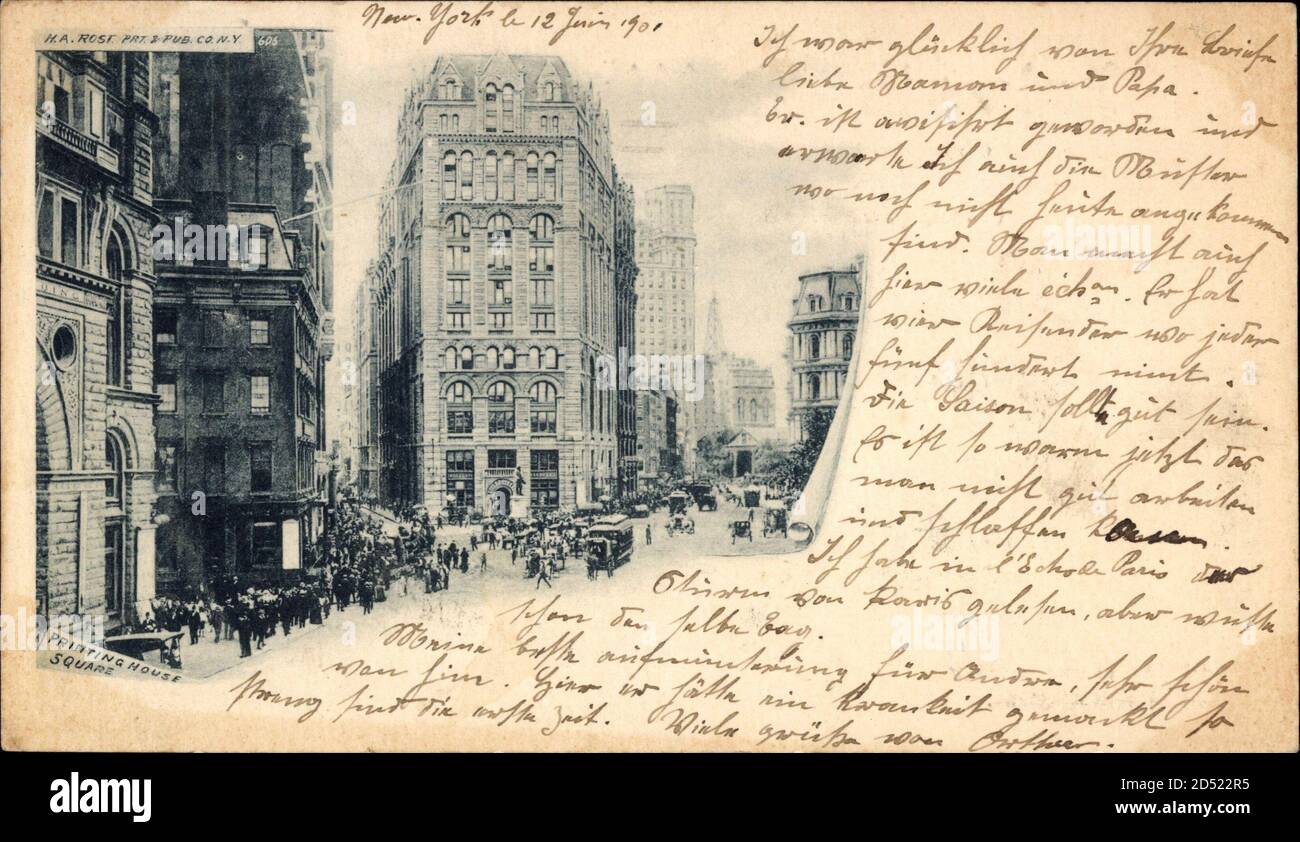 H.A. ROST PRT. & PUB. CO. N.Y. 606
New-York le 12 Juin 1901
Ich war glücklich von Ihre Briefe
liebe Mamom und Papa.
Er. ist avisihrt geworden und
erwarte Ich auch die Muster
wo noch nicht heute angekommen
sind. Man macht auch
hier viele échan. Er hat
vier Reisender wo jeder
fünf hundert nimt.
Die Saison sollte gut sein.
Es ist so warm jetzt das
man nicht gut arbeiten
und schlaffen
Ich habe in l'Echo de Paris der
Sturm von Paris gelesen, aber wüste
schon den selbe Tag.
Meine beste aufmunterung für Andre, sehr schön
von him. Hier er hätte ein Krankeit gemackt so
streng sind die erste Zeit. Viele grüße von
PRINTING HOUSE
SQUARE
alamy
Image ID: 2D522R5
www.alamy.com